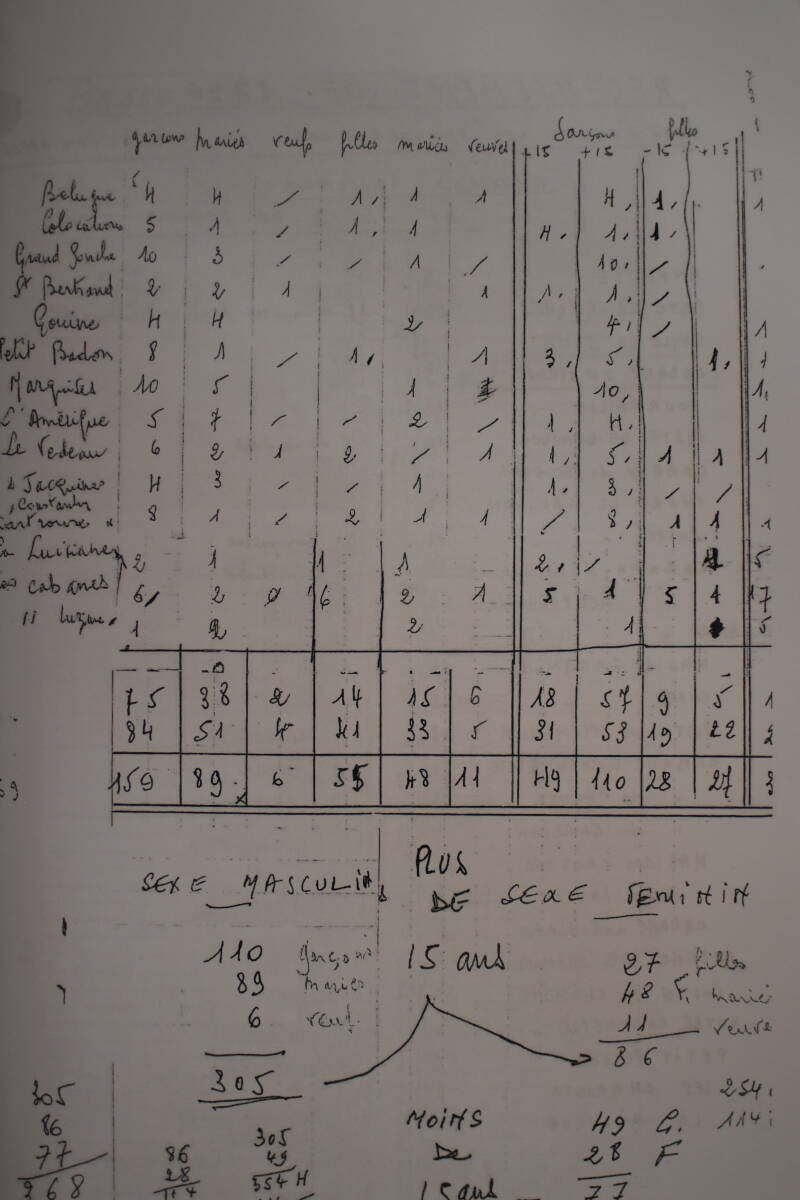 garçons mariés veufs filles mariées veuves Garçons filles
+15 +15 -15 +15
Beluque 4 4 / 1, 1 1 4, 1, 1
Colocations 5 1 / 1, 1 4, 1, 1,
Grand 10 3 / / 1 / 10, /
St Bertrand 2 2 1 1 1, 1, /
Gouine 4 4 2 4, / 1
Petit Badon 8 1 / 1, 1 3, 5, 1, 1
Marquises 10 5 1 10, 1,
L'Amérique 5 7 / / 2 / 1, 4, 1
Le Vedeau 6 2 1 2 / 1 1, 5, 1 1 1
Jacquines 4 3 / / 1 1, 3, / /
8 1 / 2 1 1 / 8, 1 1 1
2 1 1 1 2, / 5
cabanes 6, 2 0 6 2 1 5 1 5 1 17
1 2 2 1 5
75 38 2 14 15 6 18 57 9 5 1
84 51 4 41 33 5 31 53 19 22 2
159 89 6 55 48 11 49 110 28 27 3
SEXE MASCULIN PLUS DE 15 ans SEXE FEMININ
110 garçons 27 filles
89 mariés 48 F. mariées
6 veufs 11 veuves
305 86
254
305 MOINS 49 G. 114
86 305 DE 28 F
77 86 49 15 ans 77
268 28 354 H
114